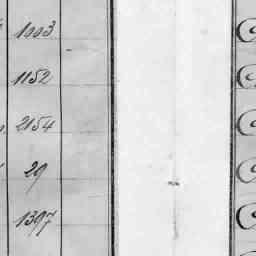 1003
1152
2154
29
1397